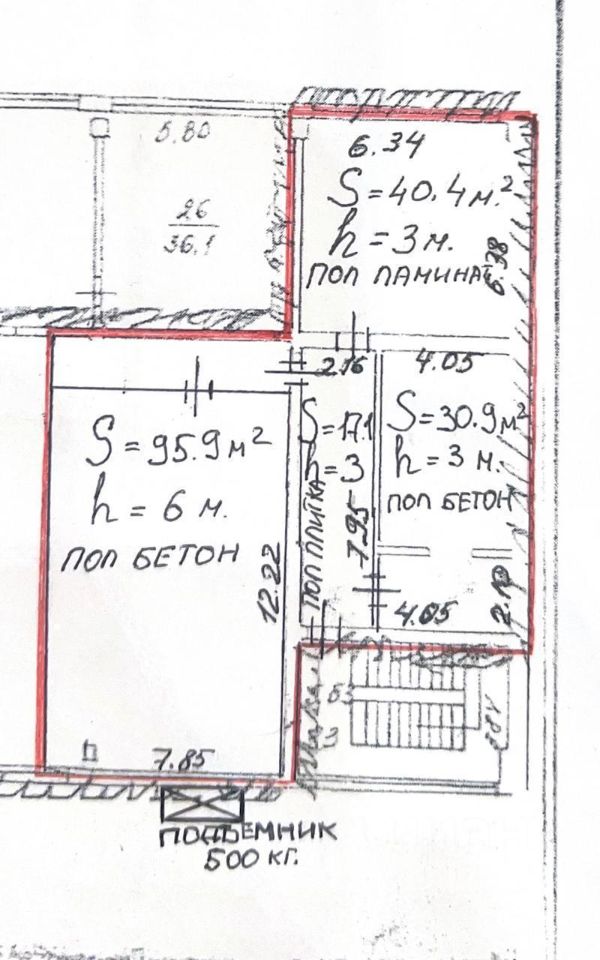 5.80
26
36.1
6.34
S=40.4м.²
h=3м.
ПОЛ ЛАМИНАТ
6.38
2.16
4.05
S=95.9м²
h=6 м.
ПОЛ БЕТОН
12.22
S=17.1
h=3
ПОЛ ПЛИТКА
7.95
S=30.9м²
h=3 м.
ПОЛ БЕТОН
4.05
7.85
ПОДЪЕМНИК
500 КГ.